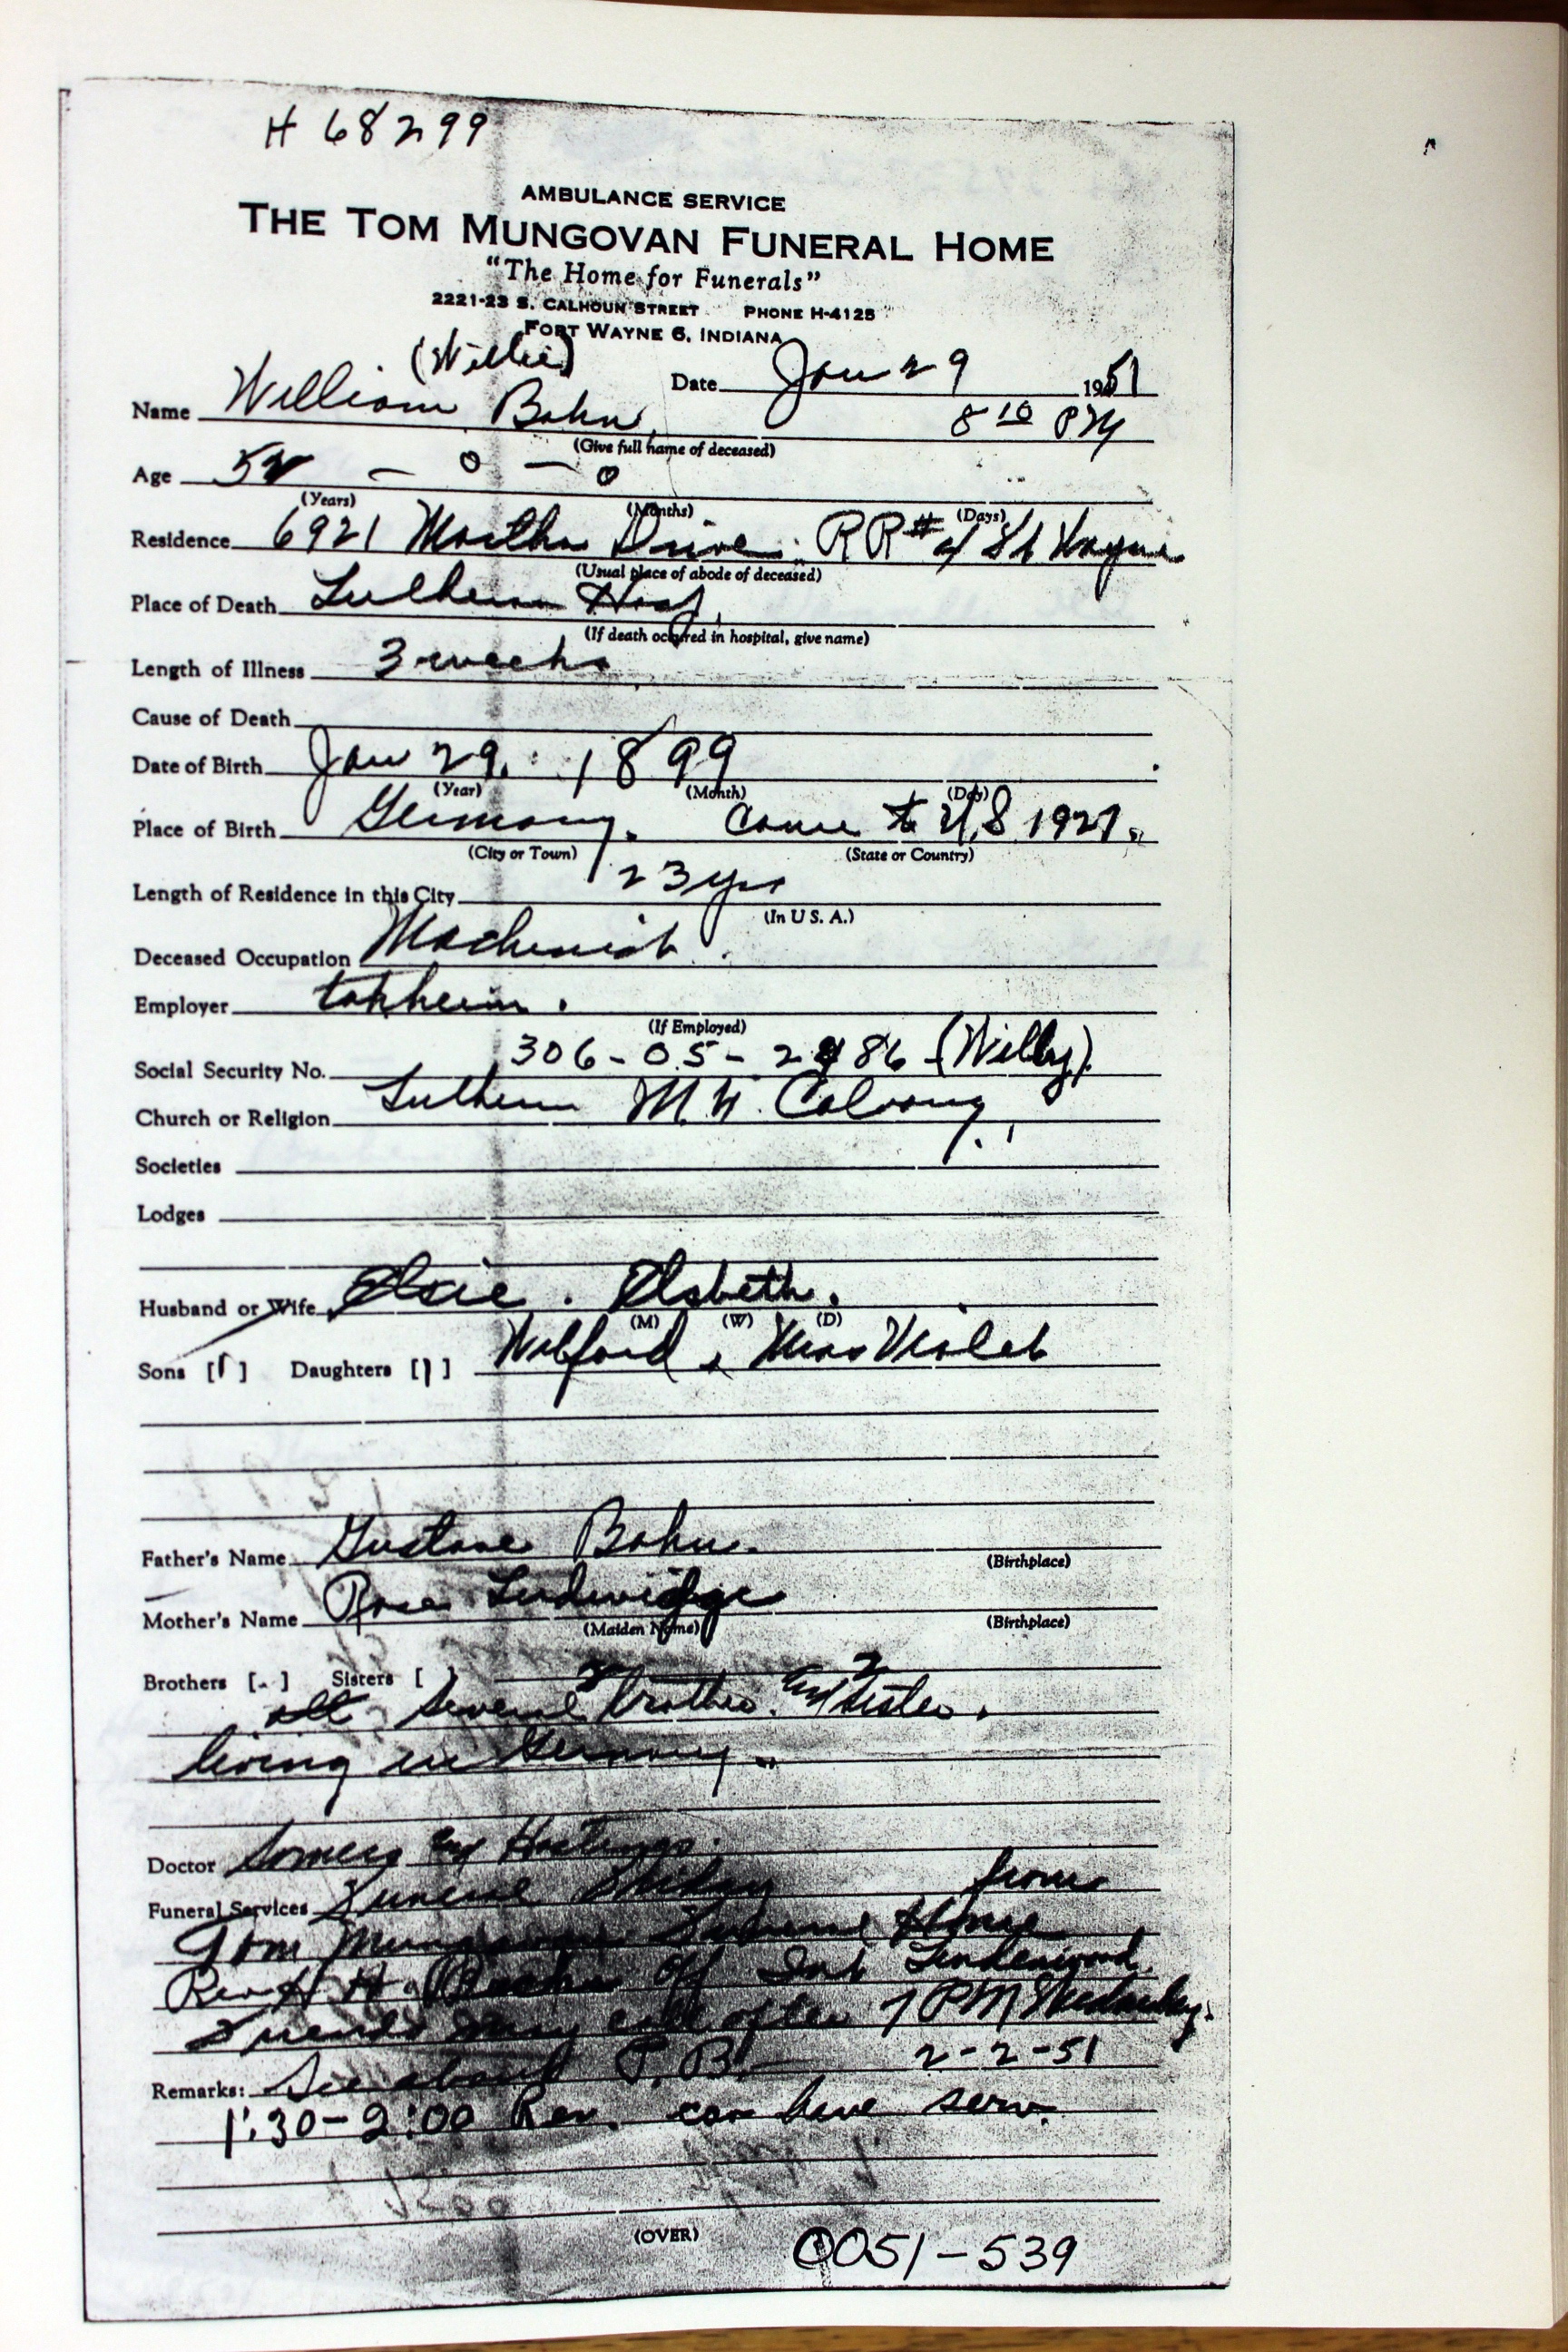 H 68299
AMBULANCE SERVICE
THE TOM MUNGOVAN FUNERAL HOME
"The Home for Funerals"
2221-23 S. CALHOUN STREET PHONE H-4125
FORT WAYNE 6, INDIANA
(Willie)
Date Jan 29 1951
Name William Bohn 8 10 PM
(Give full name of deceased)
Age 52 - 0 - 0
(Years) (Months) (Days)
Residence 6921 Martha Drive. RR# 4 Ft Wayne
(Usual place of abode of deceased)
Place of Death Lutheran Hosp.
(If death occured in hospital, give name)
Length of Illness 3 weeks
Cause of Death
Date of Birth Jan 29, 1899
(Year) (Month) (Day)
Place of Birth Germany. Came to U,S 1927.
(City or Town) (State or Country)
Length of Residence in this City 23 yrs
(In U S. A.)
Deceased Occupation Machinist.
Employer tokheim.
(If Employed)
Social Security No. 306-05-2486 (Willy)
Church or Religion Lutheran Mt. Calvary
Societies
Lodges
Husband or Wife Elsie. Elsbeth.
(M) (W) (D)
Sons [1] Daughters [1] Wilford, Miss Violet
Father's Name Gustave Bohn.
(Birthplace)
Mother's Name Rose Ludwidge
(Maiden Name) (Birthplace)
Brothers [-] Sisters [ ]
2
all several brother. and sister.
living in Germany.
Doctor Somers and Hastings.
Funeral Services Funeral Friday from
Tom Mungovan Funeral Home
Rev H. H. Off Int Lindenwood.
Friends may call after 7 PM Wednesday.
Remarks: See about P.B. - 2-2-51
1:30-2:00 Rev. can have serv.
(OVER) 0051-539